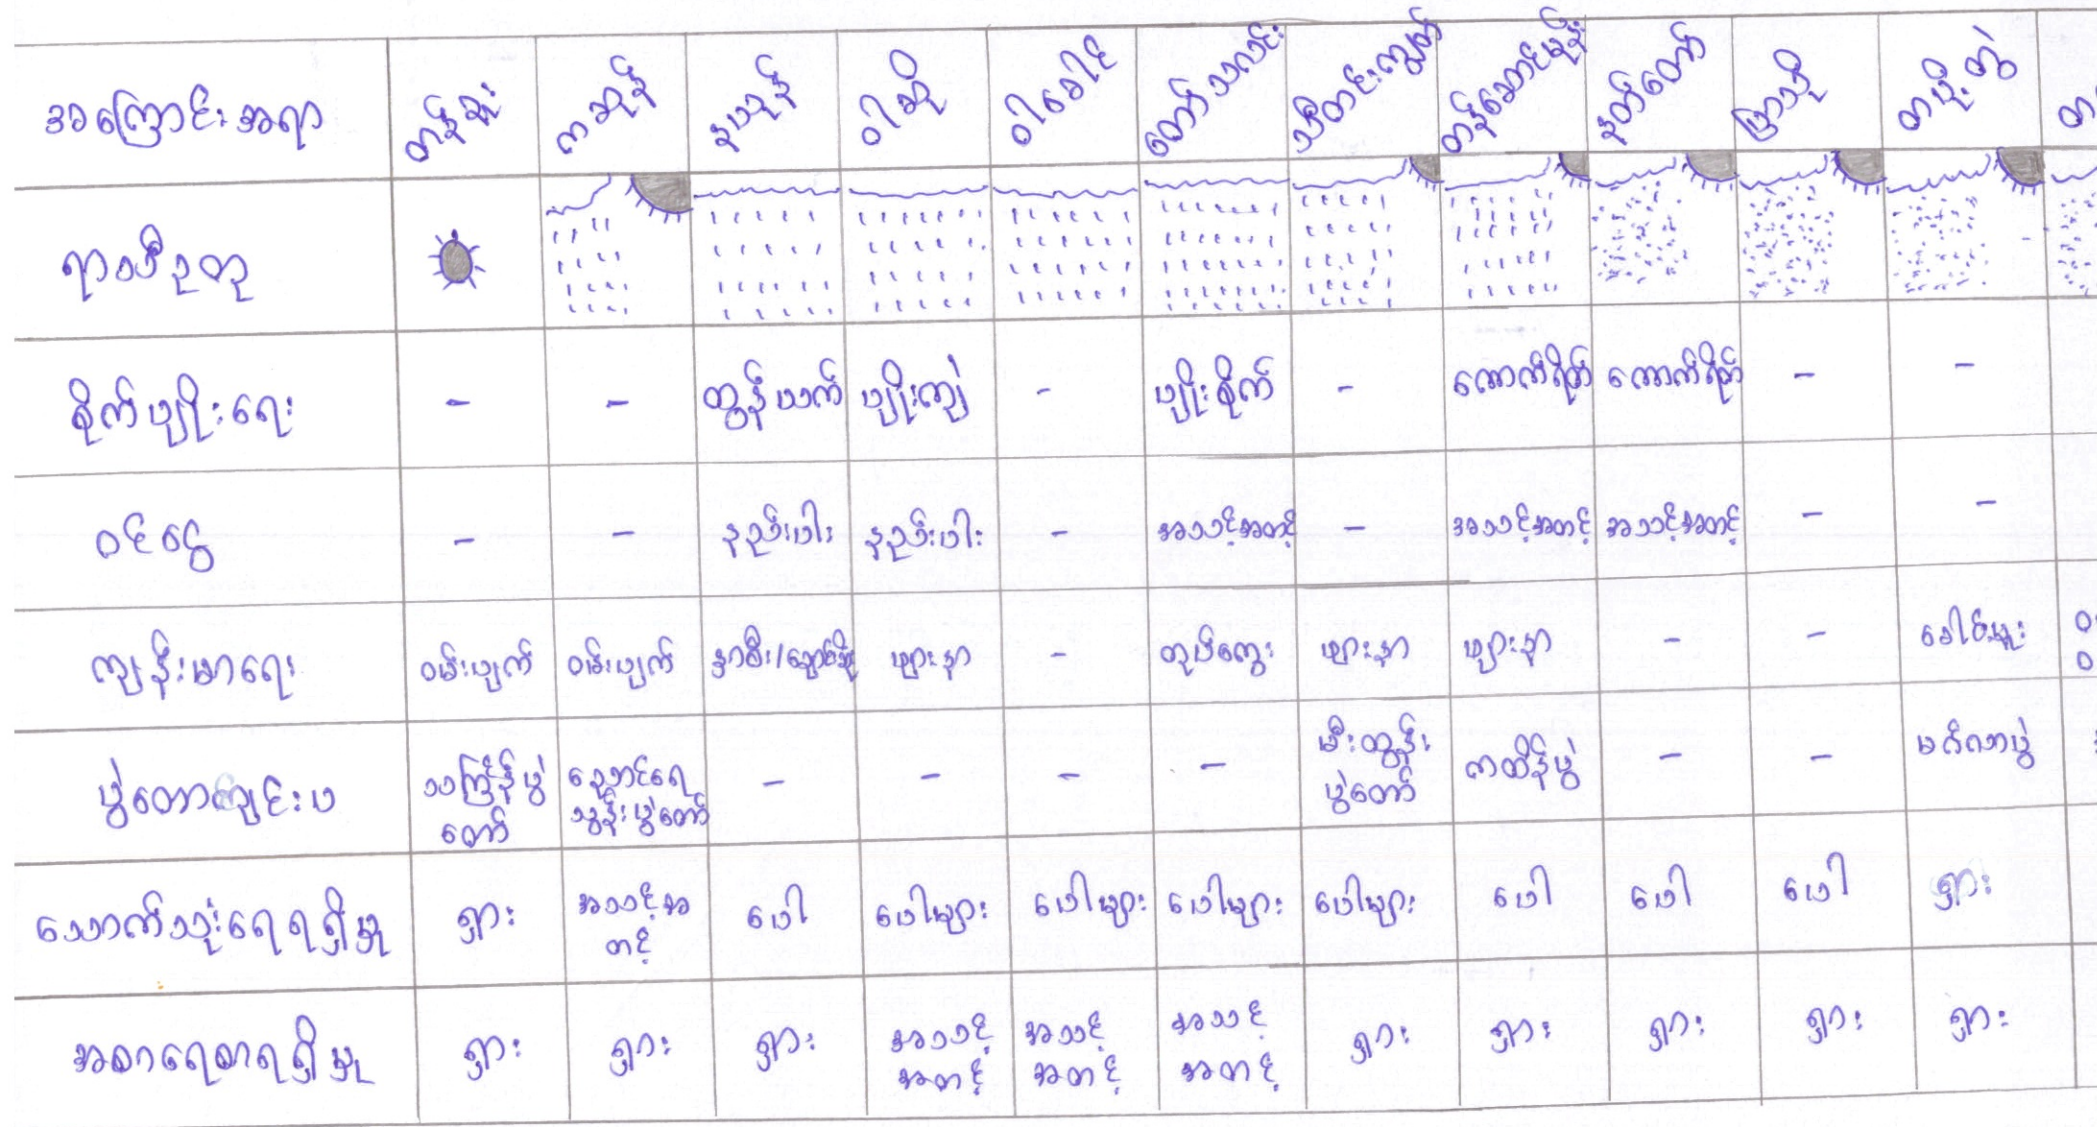 အကြောင်းအရာ တန်ခူး ကဆုန် နယုန် ဝါဆို ဝါခေါင် တော်သလင်း သီတင်းကျွတ် တန်ဆောင်မုန်း နတ်တော် ပြာသို တပို့တွဲ
ရာသီဥတု
စိုက်ပျိုးရေး - - ထွန်ယက် ပျိုးကျဲ - ပျိုးစိုက် - ကောက်ရိတ် ကောက်ရိတ် - -
ဝင်ငွေ - - နည်းပါး နည်းပါး - အသင့်အတင့် - အသင့်အတင့် အသင့်အတင့် - -
ကျန်းမာရေး ဝမ်းပျက် ဝမ်းပျက် နှာစီး/ချောင်းဆိုး ဖျားနာ - တုပ်ကွေး ဖျားနာ ဖျားနာ - - ခေါင်းမူး
ပွဲတောကျင်းပ သင်္ကြန်ပွဲ ညောင်ရေ - - - - မီးထွန်း ကထိန်ပွဲ - - မင်္ဂလာပွဲ
တော် သွန်းပွဲတော် ပွဲတော်
သောက်သုံးရေရရှိမှု ရှား အသင့်အ ပေါ ပေါများ ပေါများ ပေါများ ပေါများ ပေါ ပေါ ပေါ ရှား
တင့်
အစာရေစာရရှိမှု ရှား ရှား ရှား အသင့် အသင့် အသင့် ရှား ရှား ရှား ရှား ရှား
အတင့် အတင့် အတင့်